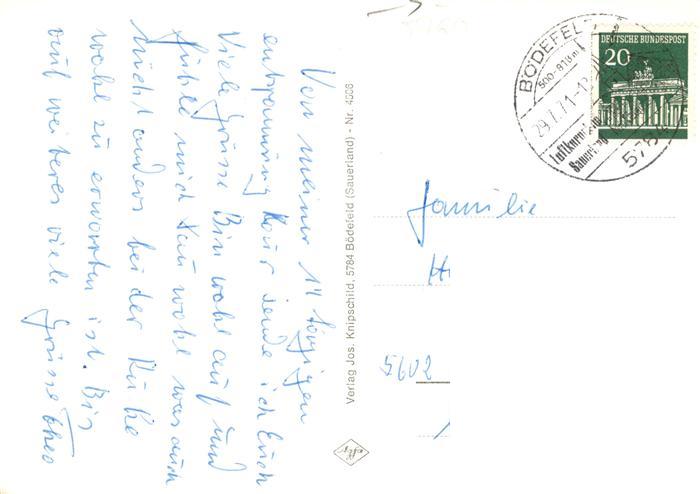 Von meiner 14 tägigen
entspannung Kour sende ich Euch
Viele Grüsse Bin wohl auf und
fühle mich sau wohl was auch
nicht anders bei der Ruhe
wohl zu erwarten ist. Bis
auf weiteres viele Grüsse Theo
Verlag Jos. Knipschild, 5784 Bödefeld (Sauerland) - Nr.
BÖDEFELD
500-813m
29.7.71-12
Luftkurort im
Sauerland
5784
DEUTSCHE BUNDESPOST
20
Familie
H
5602